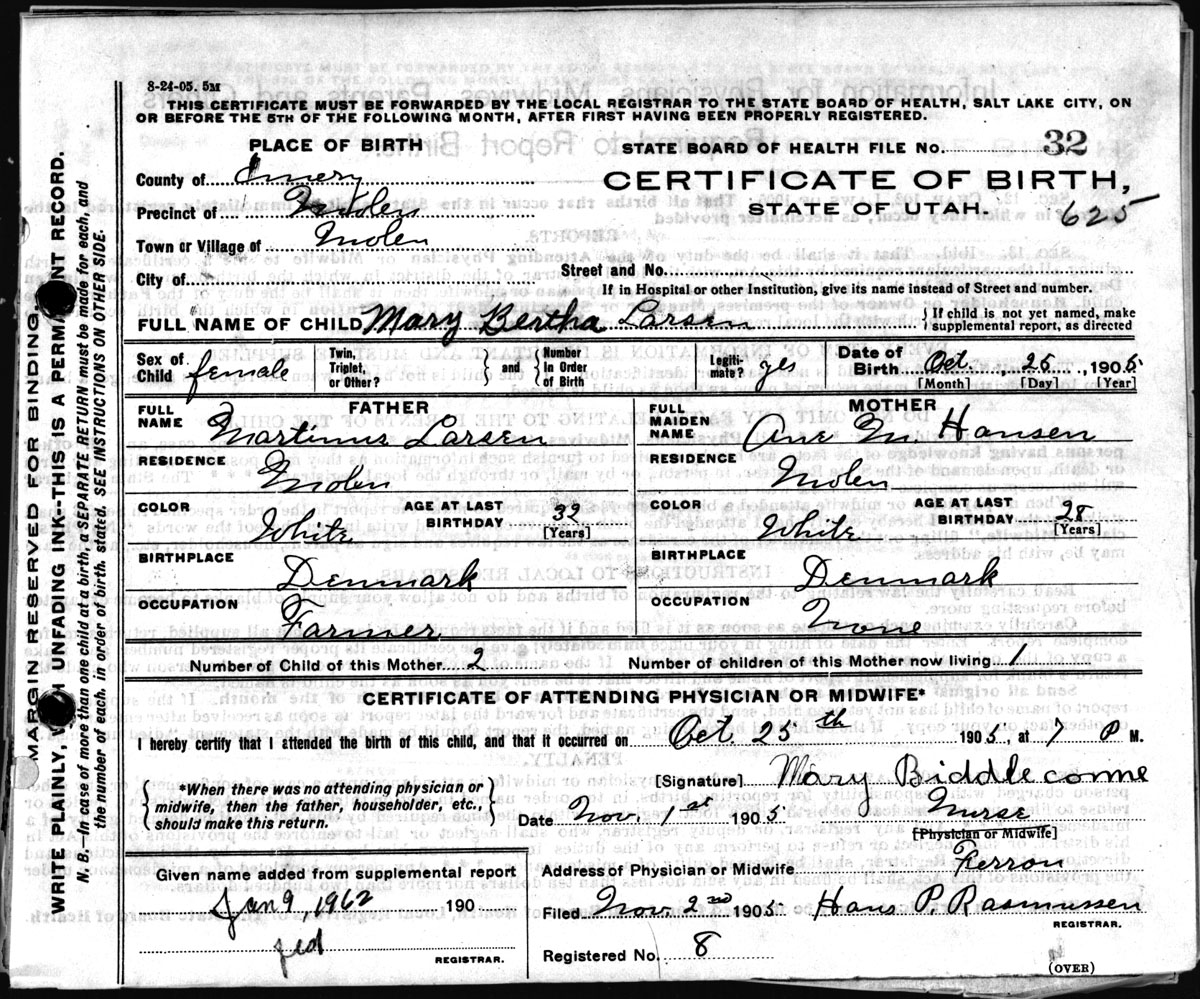 8-24-05. 5M
THIS CERTIFICATE MUST BE FORWARDED BY THE LOCAL REGISTRAR TO THE STATE BOARD OF HEALTH, SALT LAKE CITY, ON
OR BEFORE THE 5TH OF THE FOLLOWING MONTH, AFTER FIRST HAVING BEEN PROPERLY REGISTERED.
PLACE OF BIRTH
STATE BOARD OF HEALTH FILE No. 32
County of Emery
CERTIFICATE OF BIRTH,
Precinct of Molen
STATE OF UTAH. 625
Town or Village of Molen
City of
Street and No.
If in Hospital or other Institution, give its name instead of Street and number.
FULL NAME OF CHILD Mary Bertha Larsen { If child is not yet named, make supplemental report, as directed
Sex of Child female
Twin, Triplet, or Other? } and { Number in Order of Birth
Legiti- mate? yes
Date of Birth Oct. 25, 1905
[Month] [Day] [Year]
FATHER
FULL NAME Martinus Larsen
RESIDENCE Molen
COLOR White AGE AT LAST BIRTHDAY 39 [Years]
BIRTHPLACE Denmark
OCCUPATION Farmer
MOTHER
FULL MAIDEN NAME Ane M Hansen
RESIDENCE Molen
COLOR White AGE AT LAST BIRTHDAY 28 [Years]
BIRTHPLACE Denmark
OCCUPATION None
Number of Child of this Mother 2 Number of children of this Mother now living 1
CERTIFICATE OF ATTENDING PHYSICIAN OR MIDWIFE*
I hereby certify that I attended the birth of this child, and that it occurred on Oct. 25th 1905, at 7 P M.
[Signature] Mary Biddlecome
{ *When there was no attending physician or midwife, then the father, householder, etc., should make this return. }
Date Nov. 1st 1905 Nurse
[Physician or Midwife]
Given name added from supplemental report
Jan 9, 1962 190
REGISTRAR.
Address of Physician or Midwife Ferron
Filed Nov. 2nd 1905 Hans P. Rasmussen
REGISTRAR.
Registered No. 8
(OVER)
MARGIN RESERVED FOR BINDING.
WRITE PLAINLY, WITH UNFADING INK--THIS IS A PERMANENT RECORD.
N. B.—In case of more than one child at a birth, a SEPARATE RETURN must be made for each, and
the number of each, in order of birth, stated. SEE INSTRUCTIONS ON OTHER SIDE.